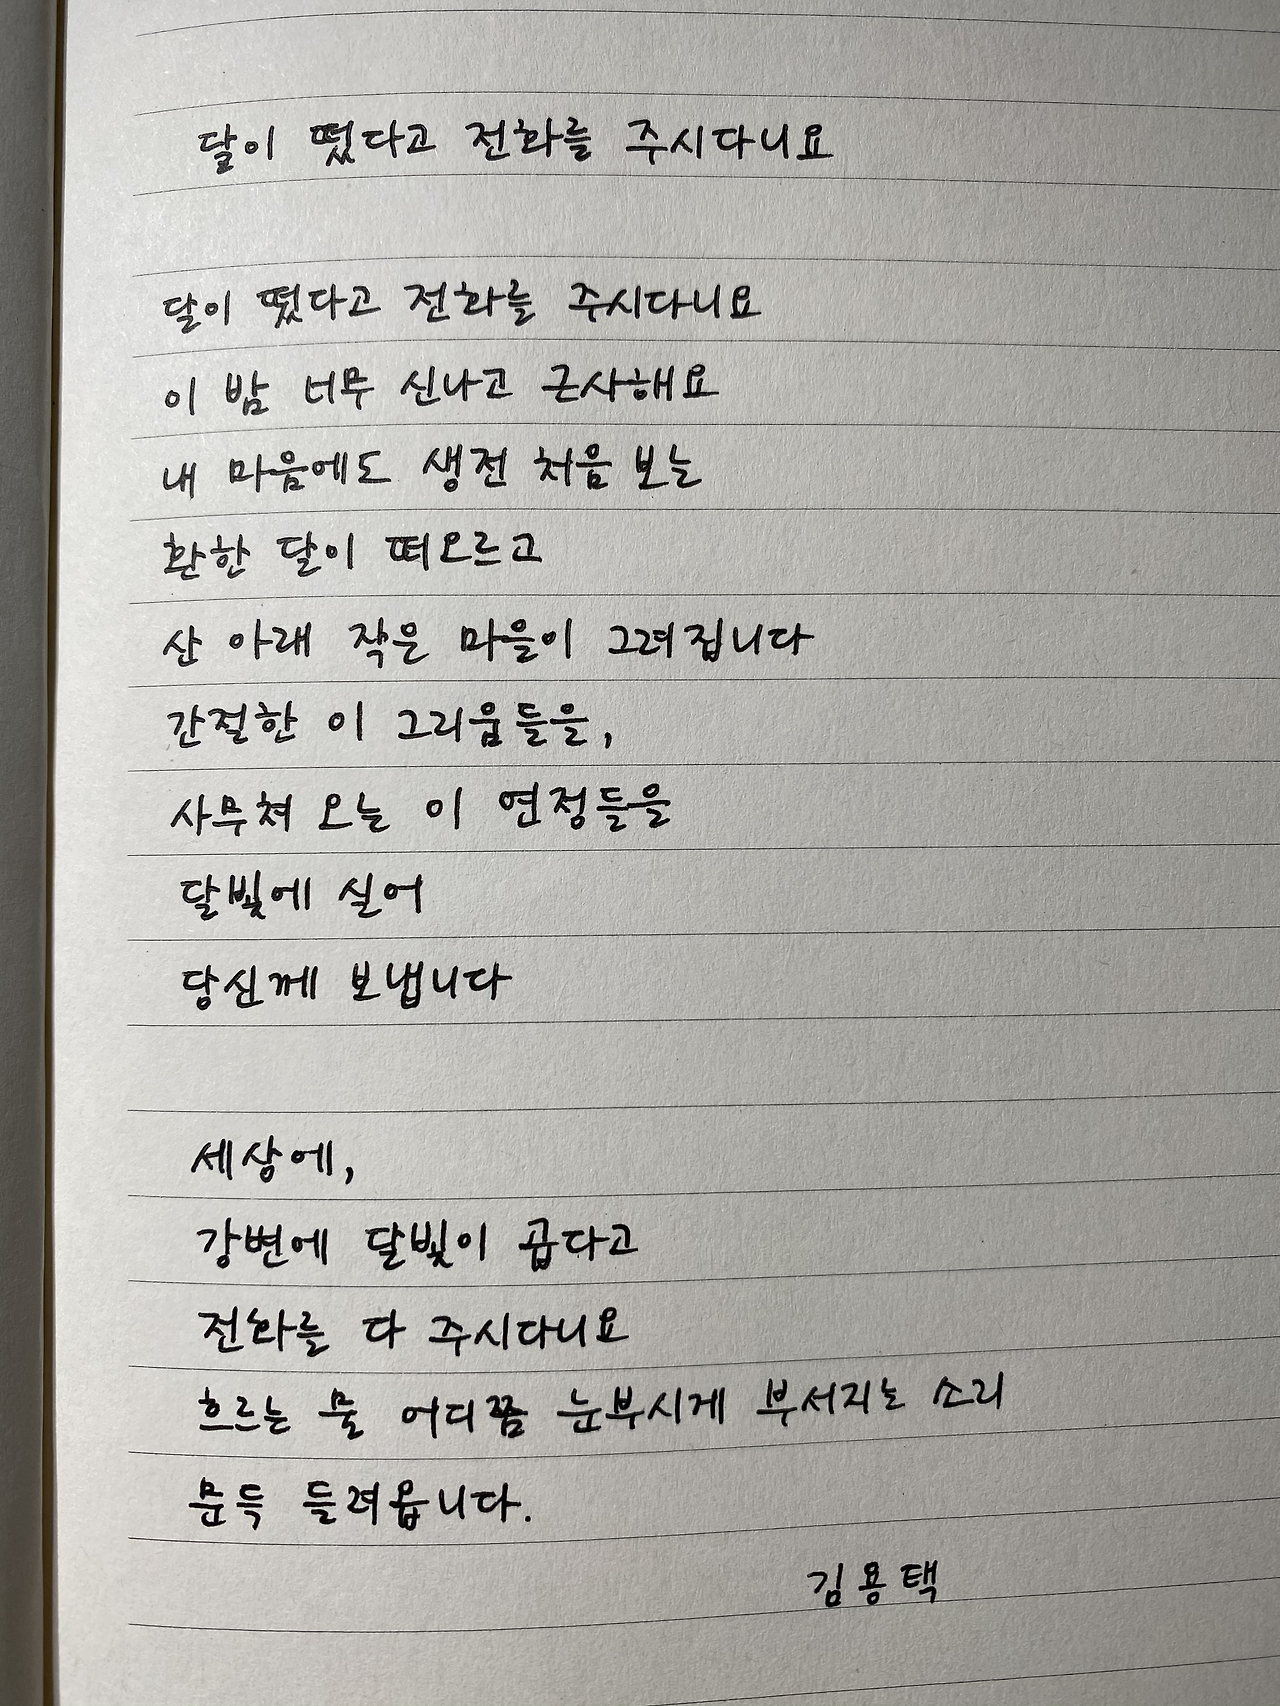 달이 떴다고 전화를 주시다니요
달이 떴다고 전화를 주시다니요
이 밤 너무 신나고 근사해요
내 마음에도 생전 처음 보는
환한 달이 떠오르고
산 아래 작은 마을이 그려집니다
간절한 이 그리움들을,
사무쳐 오늘 이 연정들을
달빛에 실어
당신께 보냅니다
세상에,
강변에 달빛이 곱다고
전화를 다 주시다니요
흐르는 물 어디쯤 눈부시게 부서지는 소리
문득 들려옵니다.
김용택